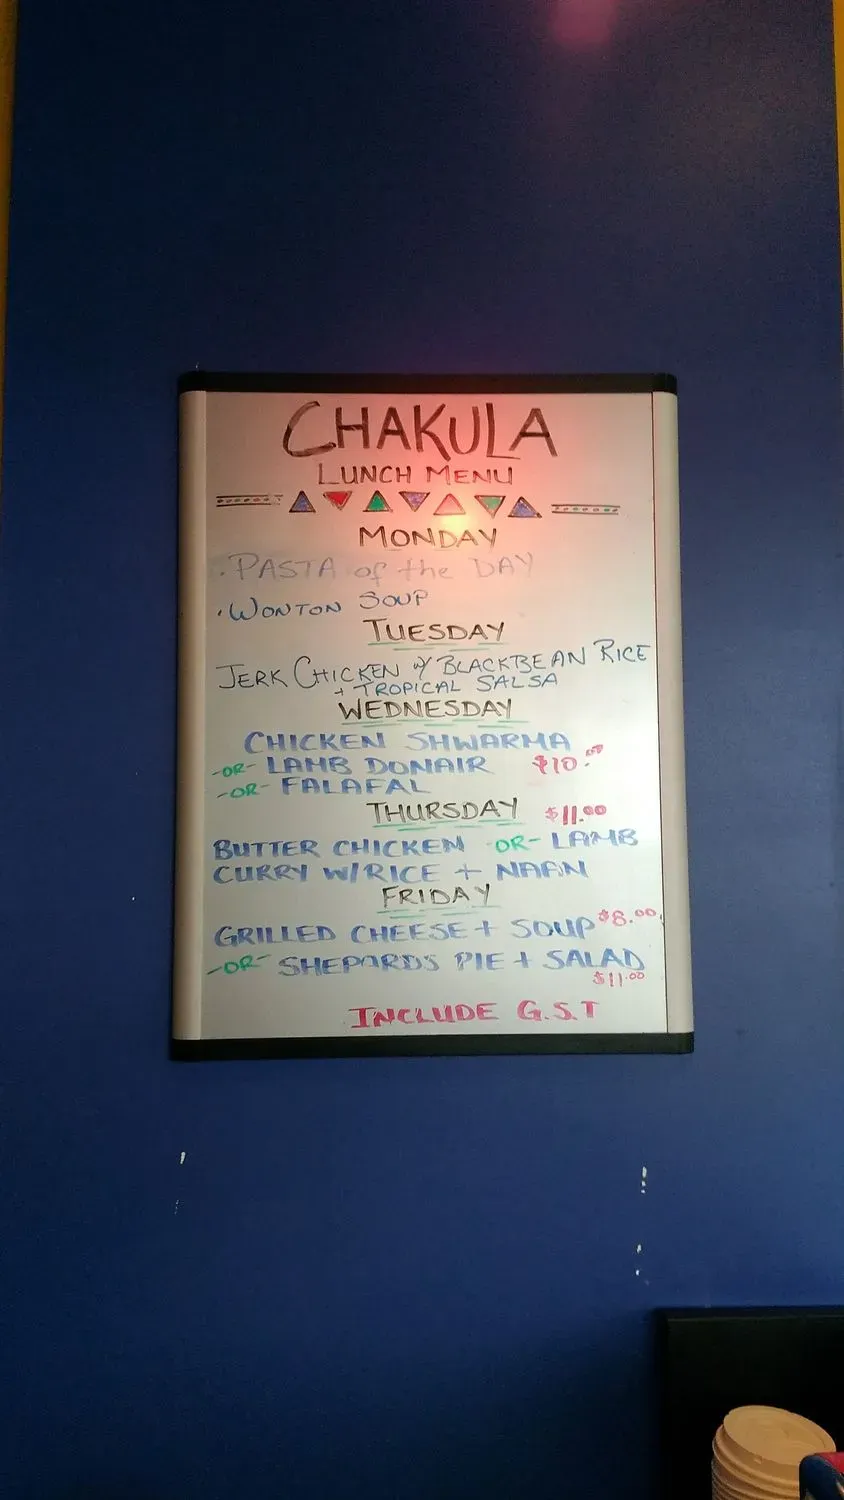 CHAKULA
LUNCH MENU
MONDAY
· PASTA of the DAY
· WONTON SOUP
TUESDAY
JERK CHICKEN W/ BLACKBEAN RICE
+ TROPICAL SALSA
WEDNESDAY
CHICKEN SHWARMA
-OR- LAMB DONAIR $10.00
-OR- FALAFAL
THURSDAY $11.00
BUTTER CHICKEN OR- LAMB
CURRY W/RICE + NAAN
FRIDAY
GRILLED CHEESE + SOUP $8.00
-OR- SHEPARDS PIE + SALAD
$11.00
INCLUDE G.S.T